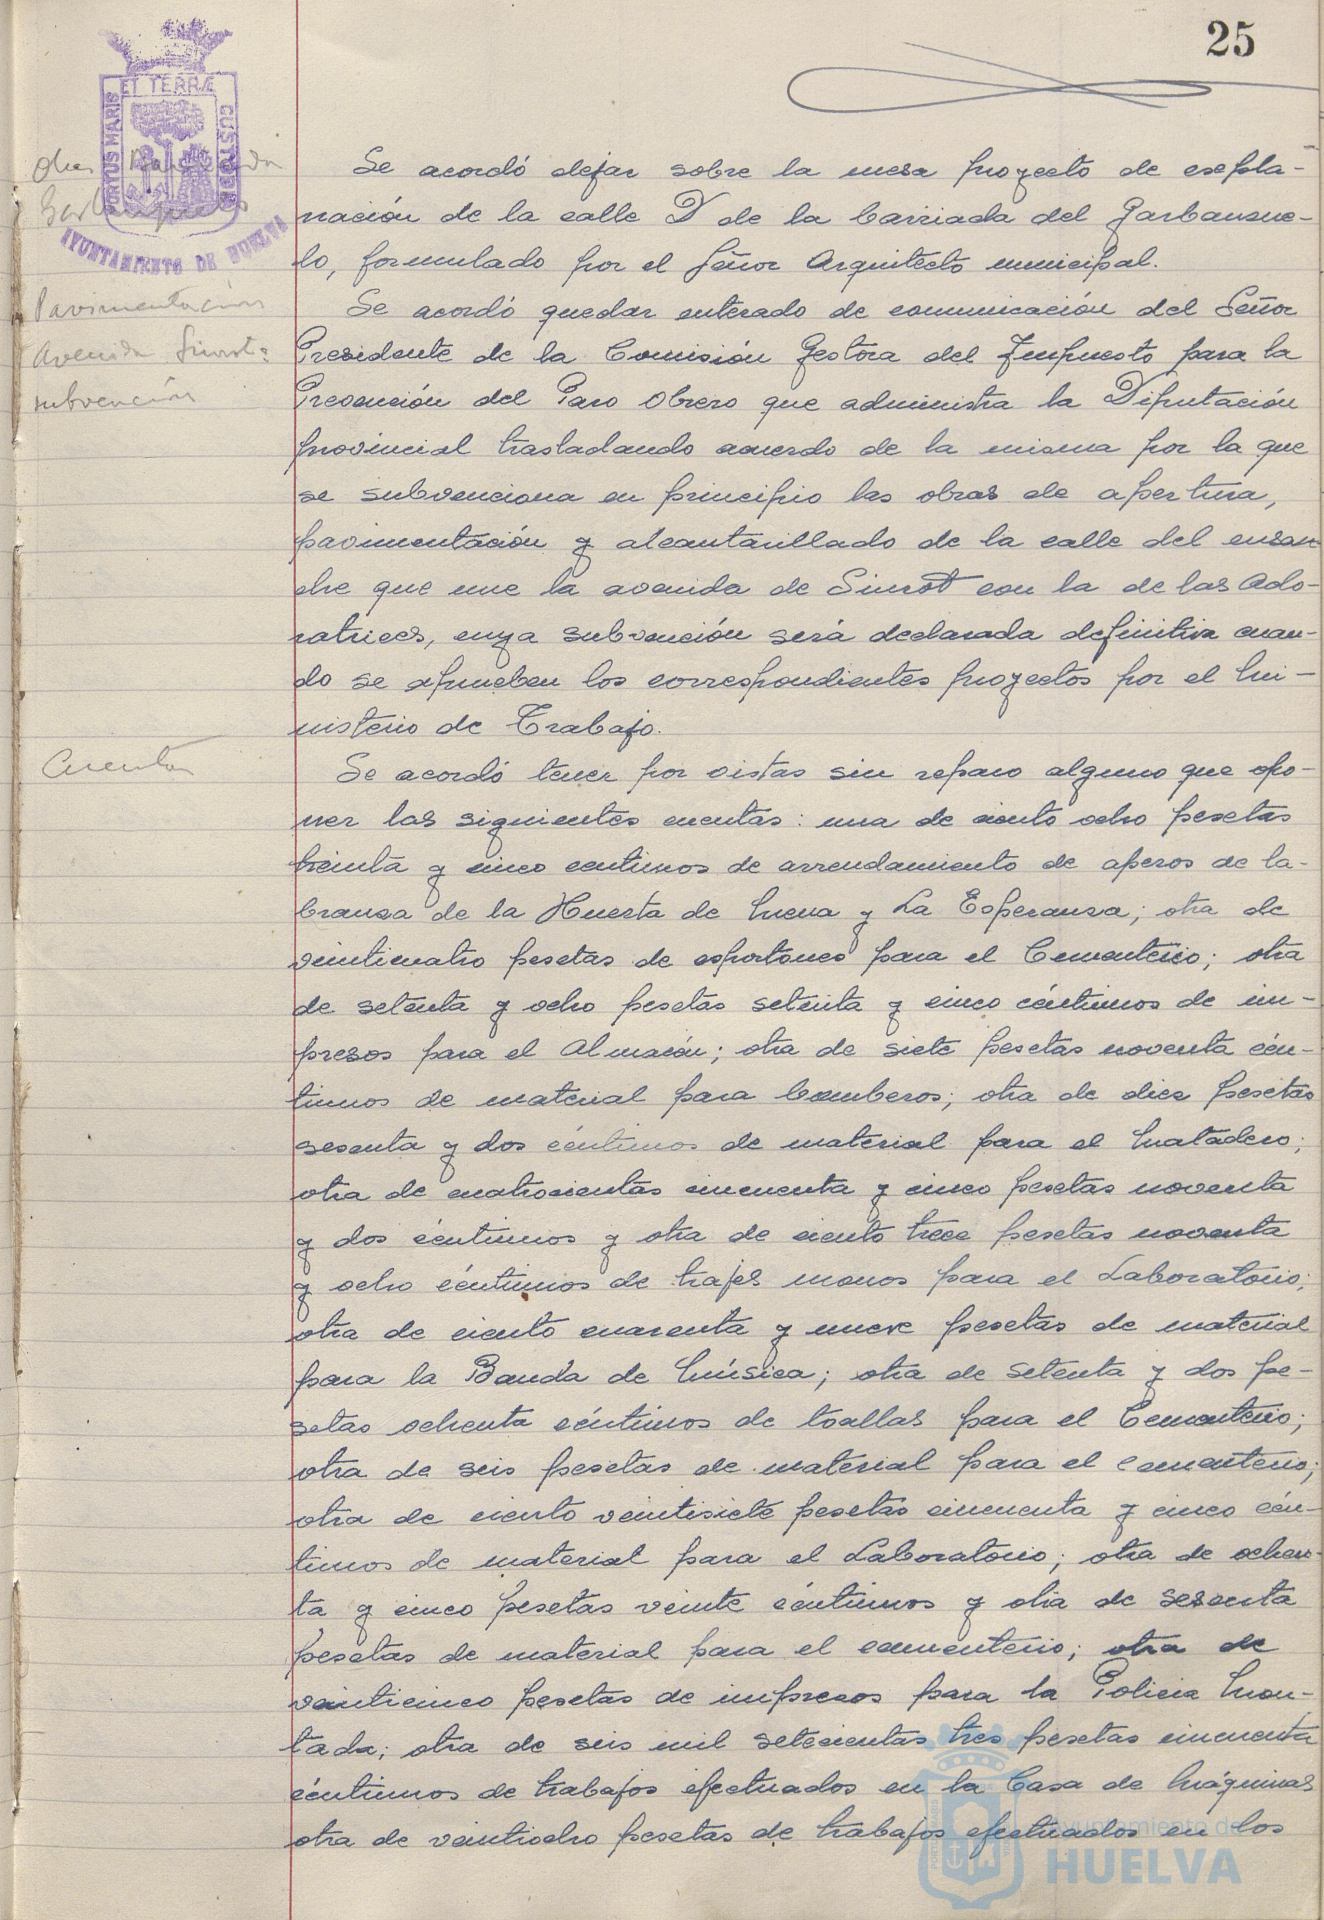 25
PORTUS MARIS ET TERRÆ CUSTODIA
AYUNTAMIENTO DE HUELVA
Se acordó dejar sobre la mesa proyecto de espla-
nación de la calle D de la barriada del Garbanzue-
lo, formulado por el Señor Arquitecto municipal.
Pavimentación
Avenida Simrot:
subvención
Se acordó quedar enterado de comunicación del Señor
Presidente de la Comisión Gestora del Impuesto para la
Prevención del Paro Obrero que administra la Diputación
provincial trasladando acuerdo de la misma por la que
se subvenciona en principio las obras de apertura,
pavimentación y alcantarillado de la calle del ensan
che que une la avenida de Simrot con la de las Ado-
ratrices, cuya subvención será declarada definitiva cuan-
do se aprueben los correspondientes proyectos por el Mi-
nisterio de Trabajo.
Cuentas
Se acordó tener por vistas sin reparo alguno que opo-
ner las siguientes cuentas: una de ciento ocho pesetas
treinta y cinco centimos de arrendamiento de aperos de la-
branza de la Huerta de Mena y La Esperanza; otra de
veinticuatro pesetas de esportones para el Cementerio; otra
de setenta y ocho pesetas setenta y cinco céntimos de im-
presos para el Almacén; otra de siete pesetas noventa cén-
timos de material para bomberos; otra de diez pesetas
sesenta y dos céntimos de material para el Matadero;
otra de cuatrocientas cincuenta y cinco pesetas noventa
y dos céntimos y otra de ciento trece pesetas noventa
y ocho céntimos de trajes monos para el Laboratorio;
otra de ciento cuarenta y nueve pesetas de material
para la Banda de Música; otra de setenta y dos pe-
setas ochenta céntimos de toallas para el Cementerio;
otra de seis pesetas de material para el cementerio;
otra de ciento veintisiete pesetas cincuenta y cinco cén-
timos de material para el Laboratorio; otra de ochen-
ta y cinco pesetas veinte céntimos y otra de sesenta
pesetas de material para el cementerio; otra de
veinticinco pesetas de impresos para la Policia Mon-
tada; otra de seis mil setecientas tres pesetas cincuenta
céntimos de trabajos efectuados en la Casa de Máquinas
otra de veintiocho pesetas de trabajos efectuados en los
Ayuntamiento de
HUELVA